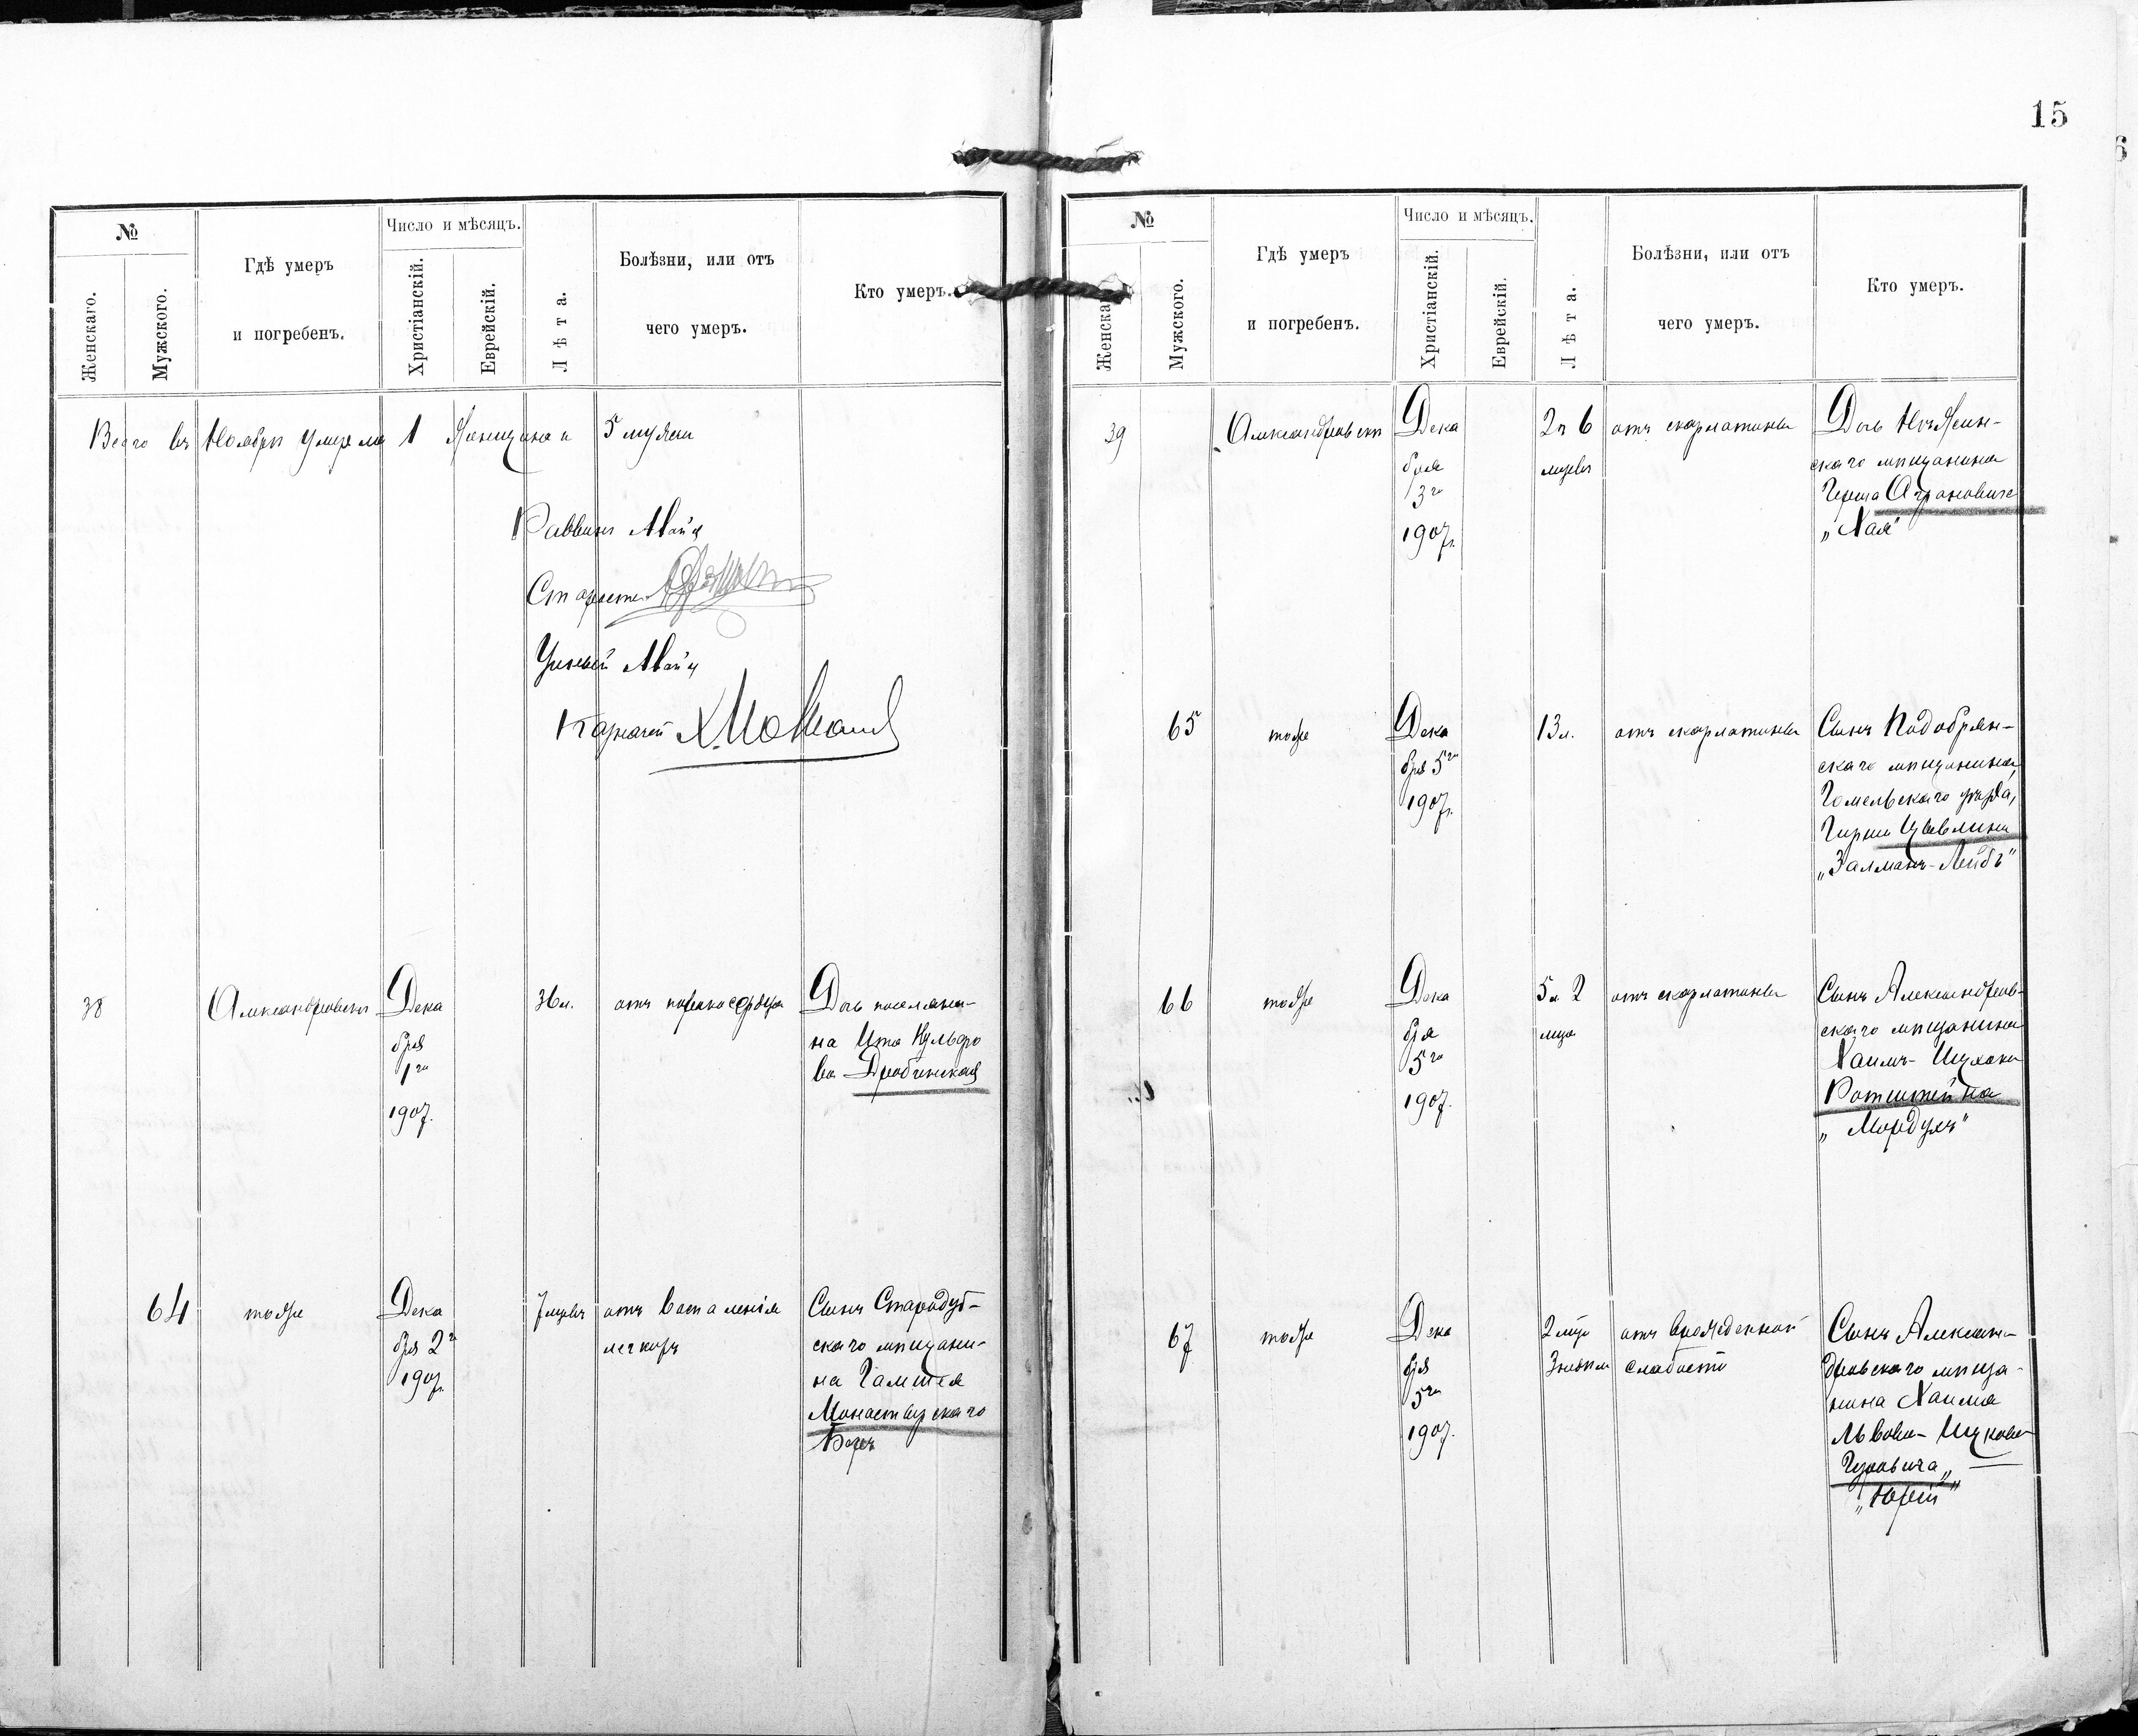 №
Женскаго.
Мужского.
Гдѣ умеръ
и погребенъ.
Число и мѣсяцъ.
Христіанскій.
Еврейскій.
Лѣта.
Болѣзни, или отъ
чего умеръ.
Кто умеръ.
Всего въ Ноябрѣ умерло 1 женщина и 5 мужчин
Раввинъ
Староста
Ученый
Казначей
38
Александровскъ
Дека
бря
1го
1907.
36 л.
отъ порока сердца
Дочь поселяни-
на Ита
ва Дробинская
64
тоже
Дека
бря 2г
1907.
7 мцевъ
отъ воспаленія
легкихъ
Сынъ Стародуб-
скаго мѣщани-
на
Монастырскаго
15
№
Женска
Мужского.
Гдѣ умеръ
и погребенъ.
Число и мѣсяцъ.
Христіанскій.
Еврейскій.
Лѣта.
Болѣзни, или отъ
чего умеръ.
Кто умеръ.
39
Александровскъ
Дека
бря
3го
1907г.
2 л 6
мцевъ
отъ скарлатины
Дочь Нѣжин-
скаго мѣщанина
Герша Аграновича
„Хая"
65
тоже
Дека
бря 5го
1907г.
13 л.
отъ скарлатины
Сынъ Подобрян-
скаго мѣщанина,
Гомельскаго уѣзда,
Гирши Цывлина
„Залманъ-Лейбъ"
66
тоже
Дека
бря
5го
1907.
5 л 2
мца
отъ скарлатины
Сынъ Александров-
скаго мѣщанина
Хаимъ-Ицхока
Ротштейна
„Мордухъ"
67
тоже
Дека
бря
5го
1907.
2 мца
3 недѣли
отъ врожденной
слабости
Сынъ Алексан-
дровскаго мѣща-
нина Хаима
Львова-Ицкова
Гуровича